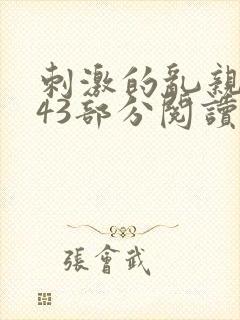 刺激的亂親
43部分閱讀
張會武